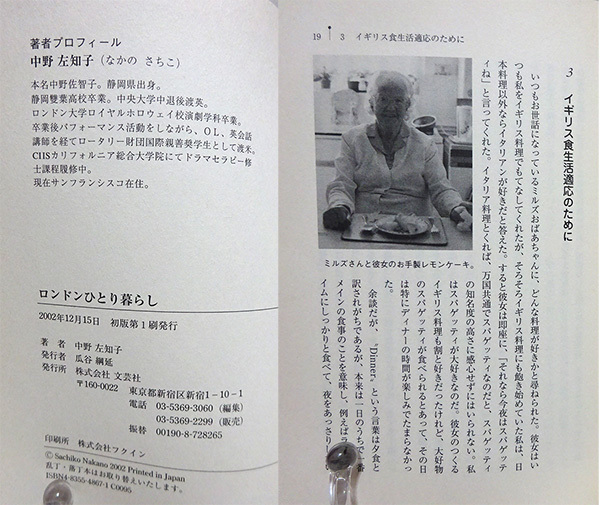 著者プロフィール
中野 左知子（なかの さちこ）
本名中野佐智子。静岡県出身。
静岡雙葉高校卒業。中央大学中退後渡英。
ロンドン大学ロイヤルホロウェイ校演劇学科卒業。
卒業後パフォーマンス活動をしながら、OL、英会話
講師を経てロータリー財団国際親善奨学生として渡米。
CIISカリフォルニア総合大学院にてドラマセラピー修
士課程履修中。
現在サンフランシスコ在住。
ロンドンひとり暮らし
2002年12月15日 初版第1刷発行
著 者 中野 左知子
発行者 瓜谷 綱延
発行所 株式会社 文芸社
〒160-0022
東京都新宿区新宿1－10－1
電話 03-5369-3060（編集）
03-5369-2299（販売）
振替 00190-8-728265
印刷所 株式会社フクイン
©Sachiko Nakano 2002 Printed in Japan
乱丁・落丁本はお取り替えいたします。
ISBN4-8355-4867-1 C0095
19 3 イギリス食生活適応のために
3 イギリス食生活適応のために
いつもお世話になっているミルズおばあちゃんに、どんな料理が好きかと尋ねられた。彼女はい
つも私をイギリス料理でもてなしてくれたが、そろそろイギリス料理にも飽き始めていた私は、日
本料理以外ならイタリアンが好きだと答えた。すると彼女は即座に、「それなら今夜はスパゲッテ
ィね」と言ってくれた。イタリア料理とくれば、万国共通でスパゲッティなのだと、スパゲッティ
の知名度の高さに感心せずにはいられない。私
はスパゲッティが大好きなのだ。彼女のつくる
イギリス料理も割と好きだったけれど、大好物
のスパゲッティが食べられるとあって、その日
は特にディナーの時間が楽しみでたまらなかっ
た。
余談だが、〝Dinner〟という言葉は夕食と
訳されがちであるが、本来は一日のうちで一番
メインの食事のことを意味し、例えばラ
イムにしっかりと食べて、夜をあっさり
ミルズさんと彼女のお手製レモンケーキ。